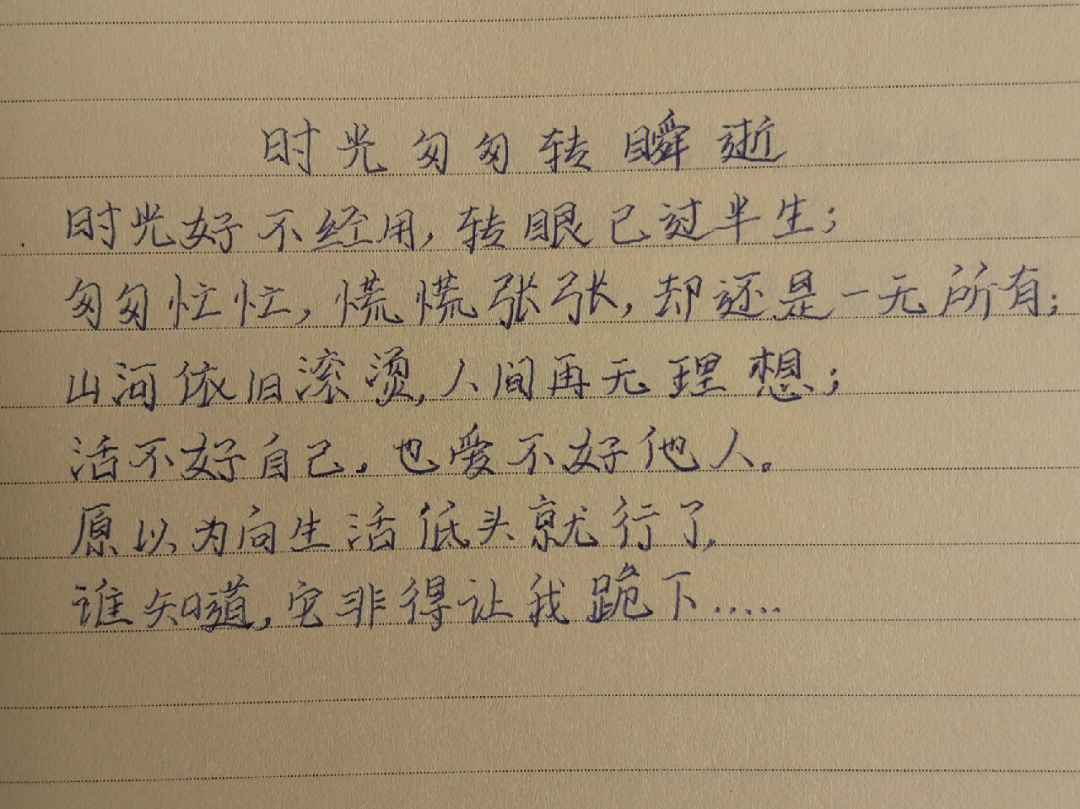 时光匆匆转瞬逝
时光好不经用,转眼已过半生;
匆匆忙忙,慌慌张张,却还是一无所有;
山河依旧滚烫,人间再无理想;
活不好自己,也爱不好他人。
原以为向生活低头就行了,
谁知道,它非得让我跪下.....